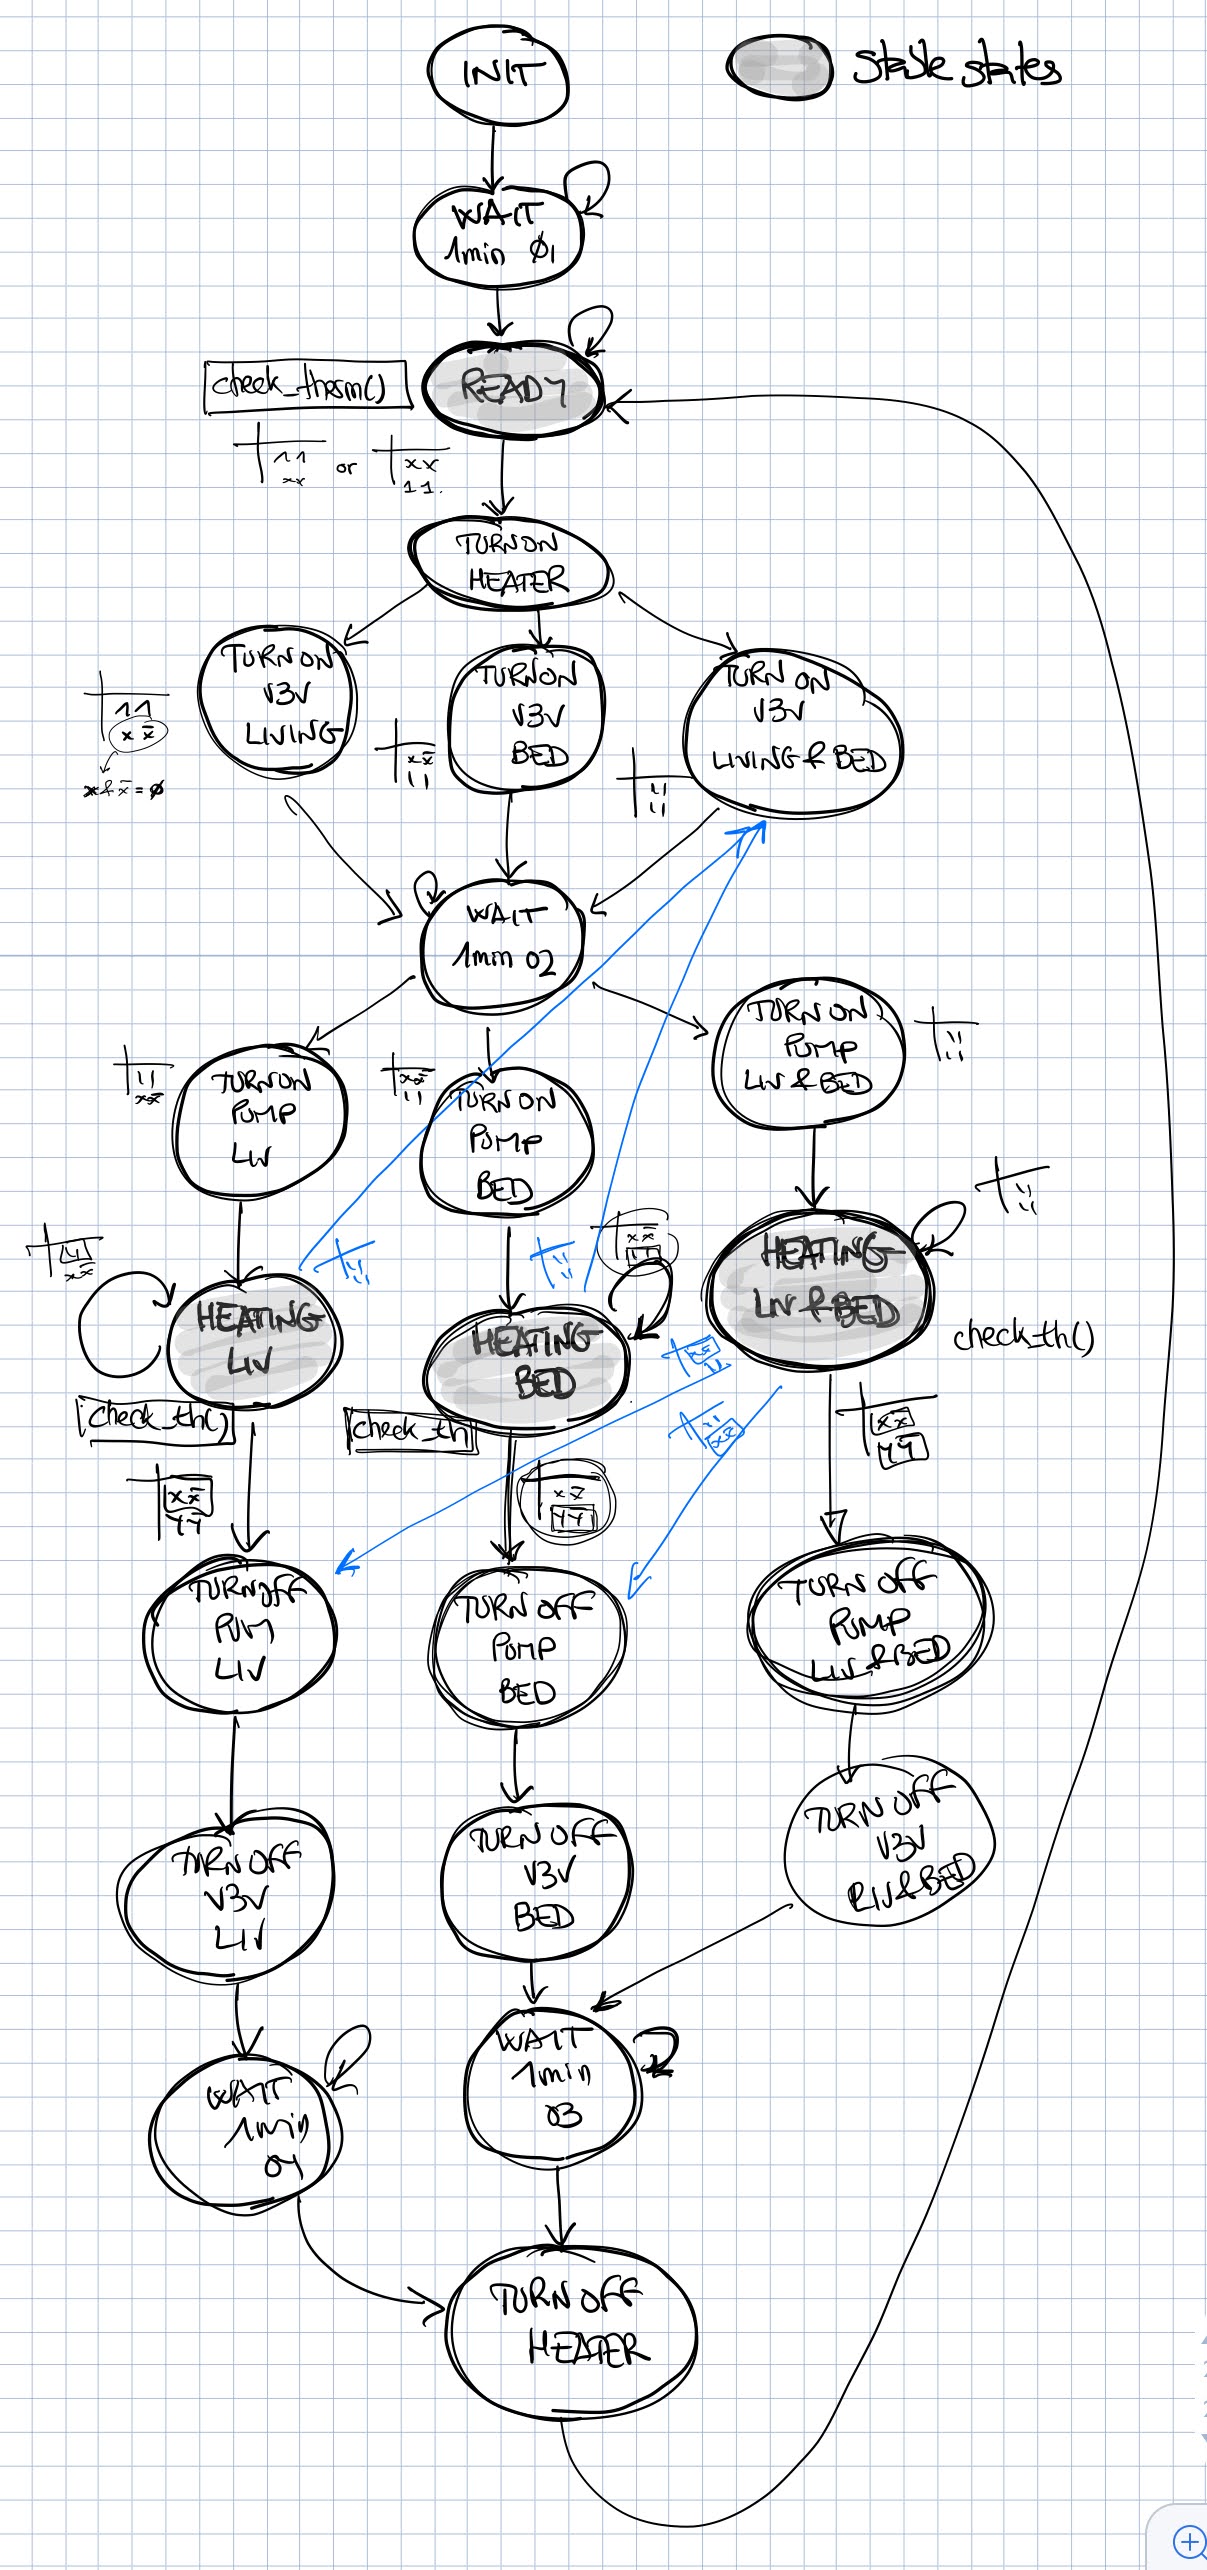 INIT
stable states
WAIT
1min Ø1
check_therm()
READY
11
xx
or
xx
11.
TURN ON
HEATER
TURN ON
V3V
LIVING
TURN ON
V3V
BED
TURN ON
V3V
LIVING & BED
11
x x̄
x & x̄ = Ø
x x̄
11
11
11
WAIT
1min 02
TURN ON
PUMP
LIV & BED
11
11
11
x x̄
x x̄
11
TURN ON
PUMP
LIV
TURN ON
PUMP
BED
11
11
11
x x̄
11
11
11
11
x x̄
11
HEATING
LIV & BED
HEATING
LIV
HEATING
BED
check_th()
check_th()
check_th
x x̄
11
11
x x̄
x x̄
y ȳ
x x̄
y ȳ
x x̄
y ȳ
TURN OFF
PUM
LIV
TURN OFF
PUMP
BED
TURN OFF
PUMP
LIV & BED
TURN OFF
V3V
LIV
TURN OFF
V3V
BED
TURN OFF
V3V
LIV & BED
WAIT
1min
04
WAIT
1min
03
TURN OFF
HEATER